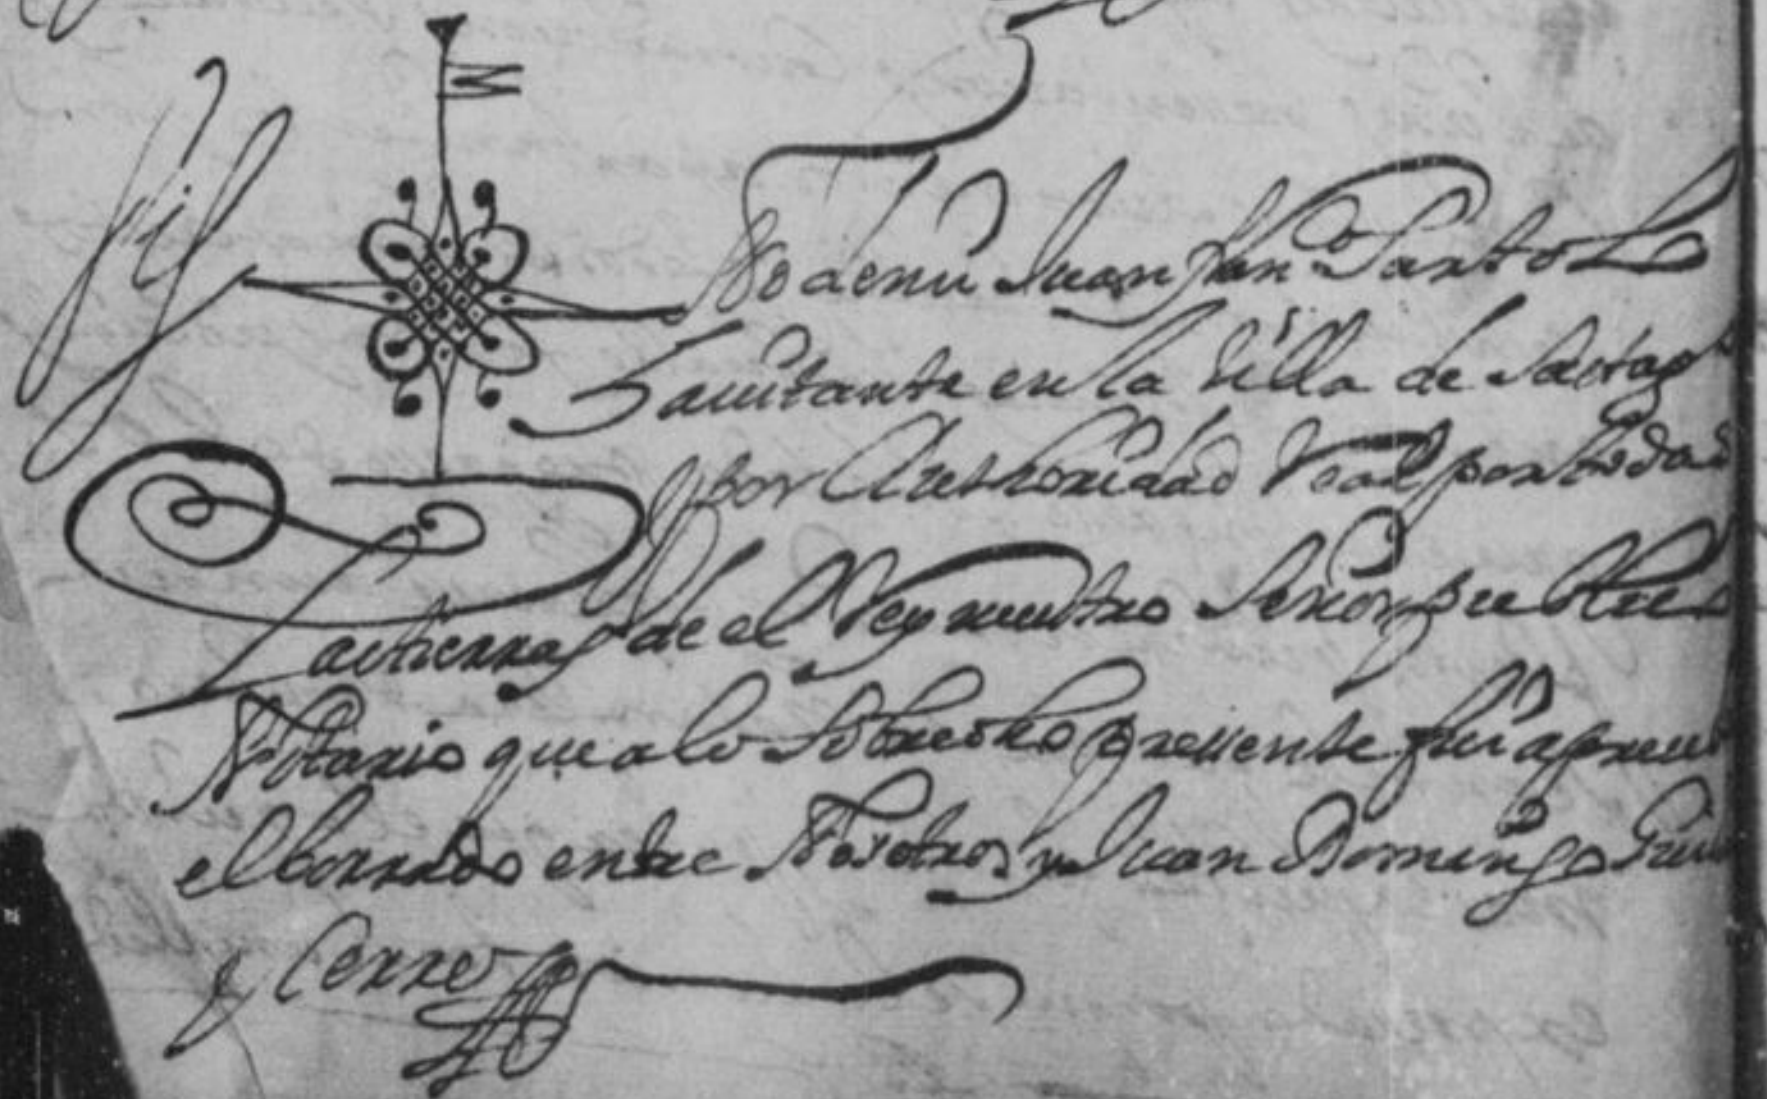 Sig
No de mi Juan fran.co Santo L
havitante en la Villa de Sastago
y por Authoridad Real por todas
las tierras de el Rey nuestro Señor publico
Notario que a lo Sobredho presente fui aprueb
el borrado entre Nosotros, y Juan Domingo
y Cerre